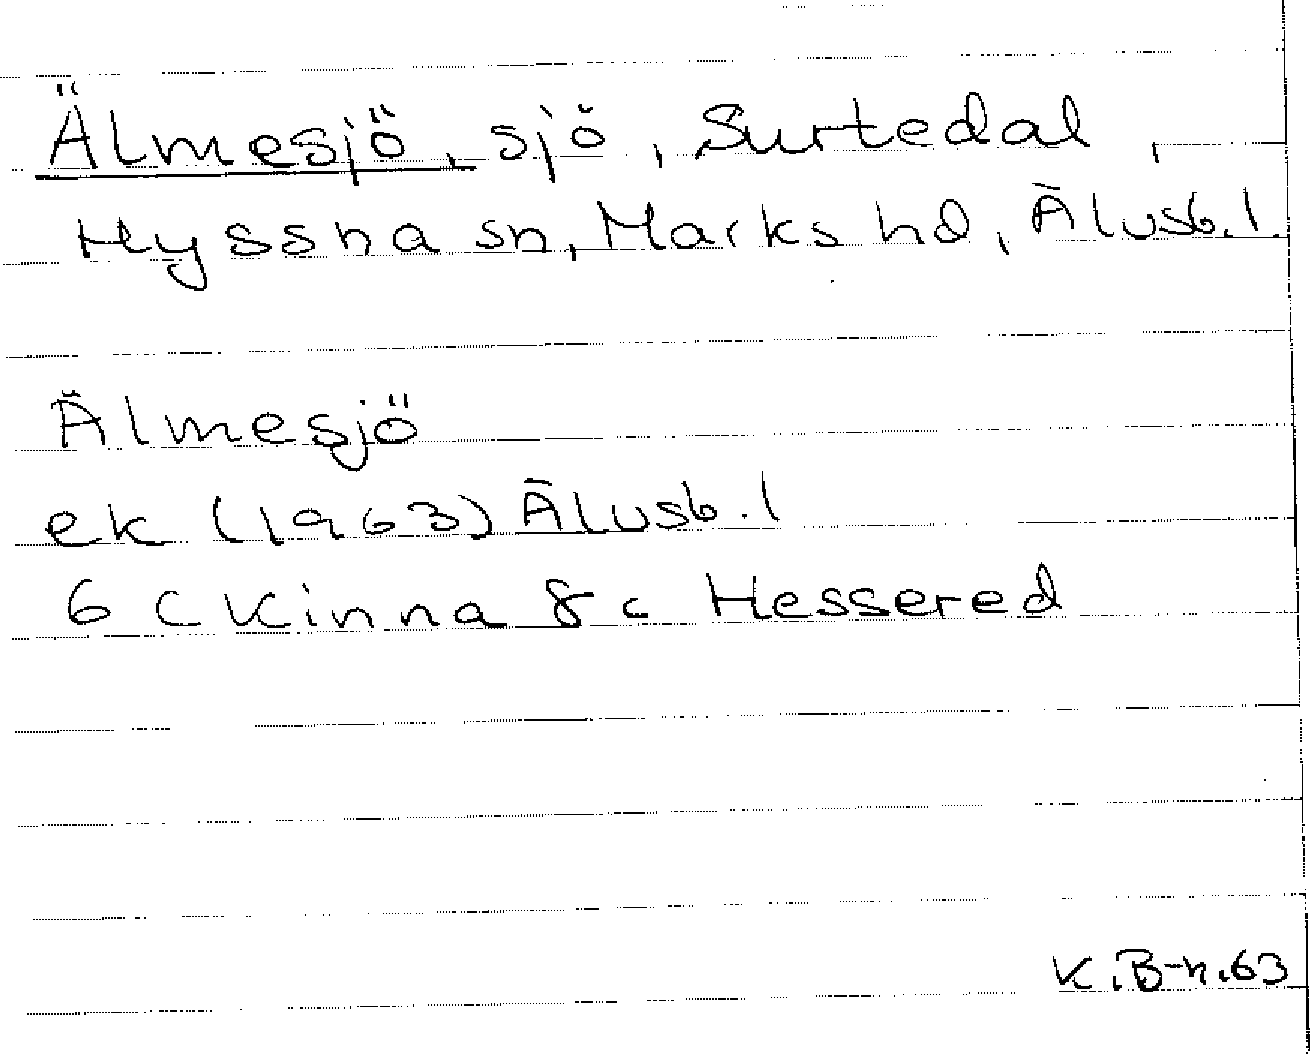 Älmesjö, sjö, Surtedal,
Hyssna sn, Marks hd, Älvsb.l.
Älmesjö
ek (1963) Älvsb.l
6 C Kinna 8 c Hessered
K.B-n.63